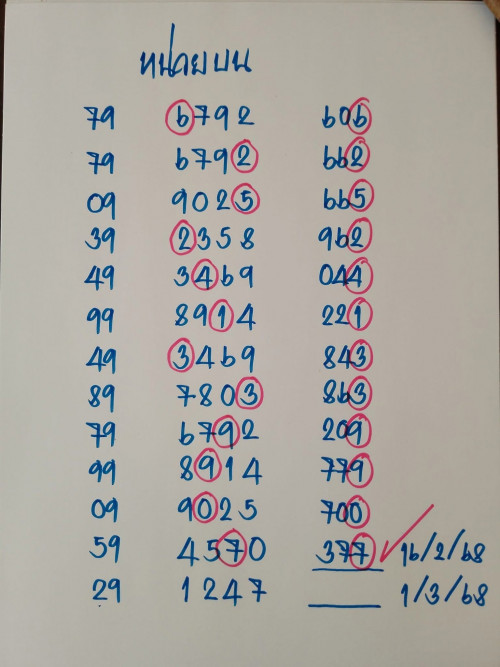 หน่วยบน
79 6792 606
79 6792 662
09 9025 665
39 2358 962
49 3469 044
99 8914 221
49 3469 843
89 7803 863
79 6792 209
99 8914 779
09 9025 700
59 4570 377 16/2/68
29 1247 1/3/68